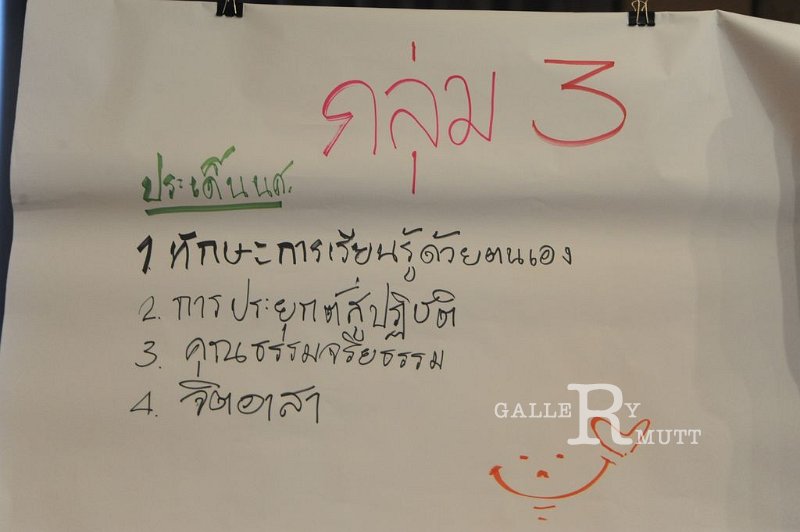 กลุ่ม 3
ประเด็นนศ.
1. ทักษะการเรียนรู้ด้วยตนเอง
2. การประยุกต์สู่ปฏิบัติ
3. คุณธรรมจริยธรรม
4. จิตอาสา
GALLERY
RMUTT